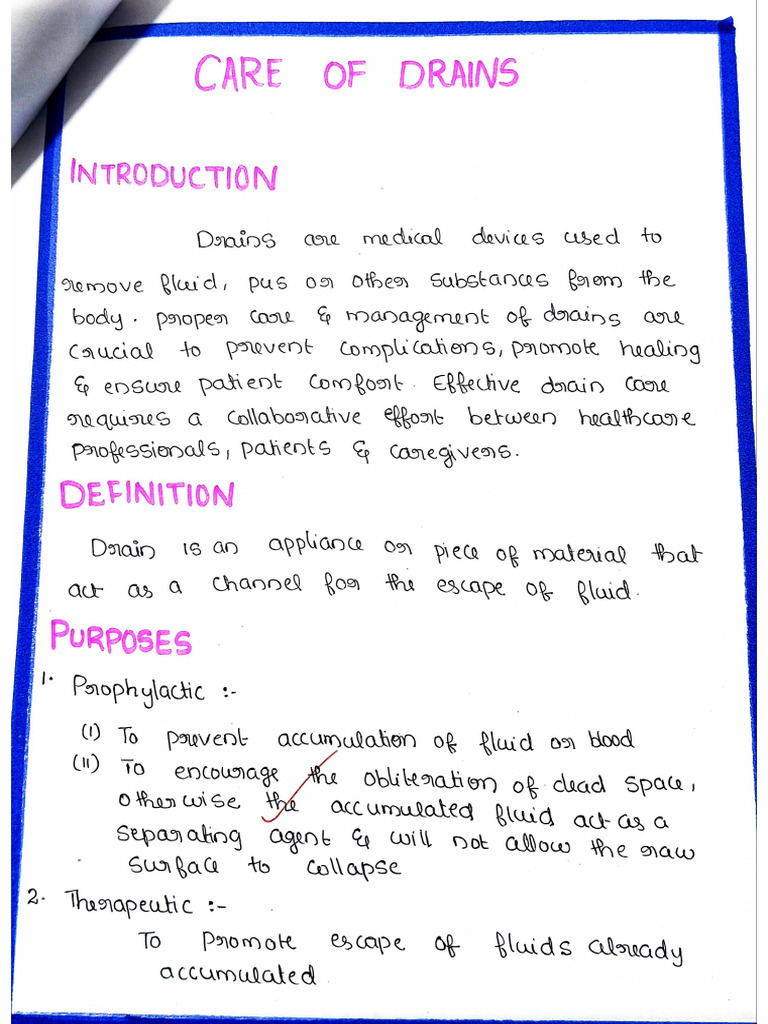 CARE OF DRAINS
INTRODUCTION
Drains are medical devices used to
remove fluid, pus or other substances from the
body. proper care & management of drains are
crucial to prevent complications, promote healing
& ensure patient comfort. Effective drain care
requires a collaborative effort between healthcare
professionals, patients & caregivers.
DEFINITION
Drain is an appliance or piece of material that
act as a channel for the escape of fluid.
PURPOSES
1. Prophylactic :-
(I) To prevent accumulation of fluid or blood
(II) To encourage the obliteration of dead space,
otherwise the accumulated fluid act as a
separating agent & will not allow the raw
surface to collapse
2. Therapeutic :-
To promote escape of fluids already
accumulated